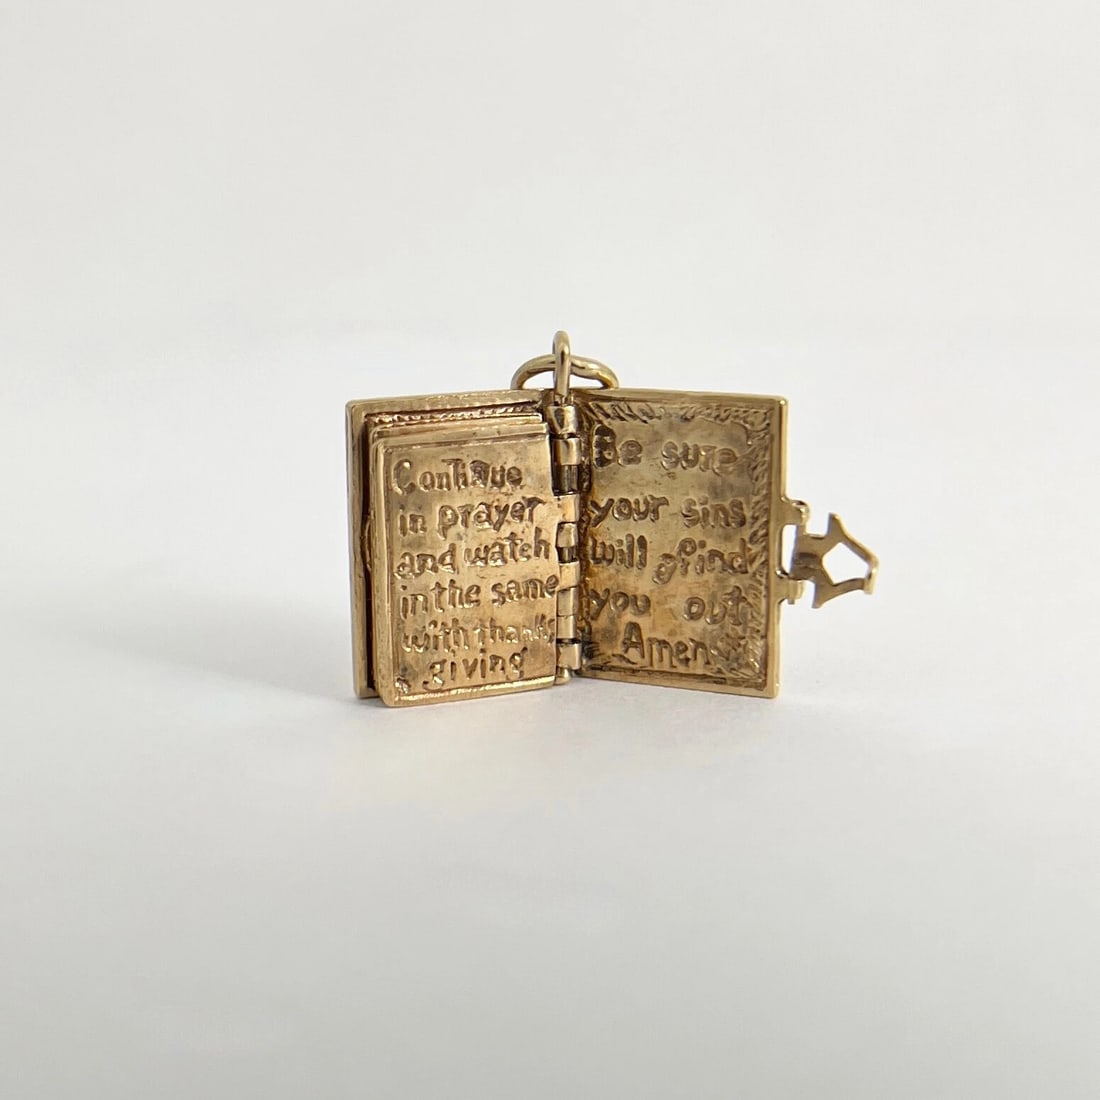 Continue
in prayer
and watch
in the same
with thanks
giving
Be sure
your sins
will find
you out
Amen